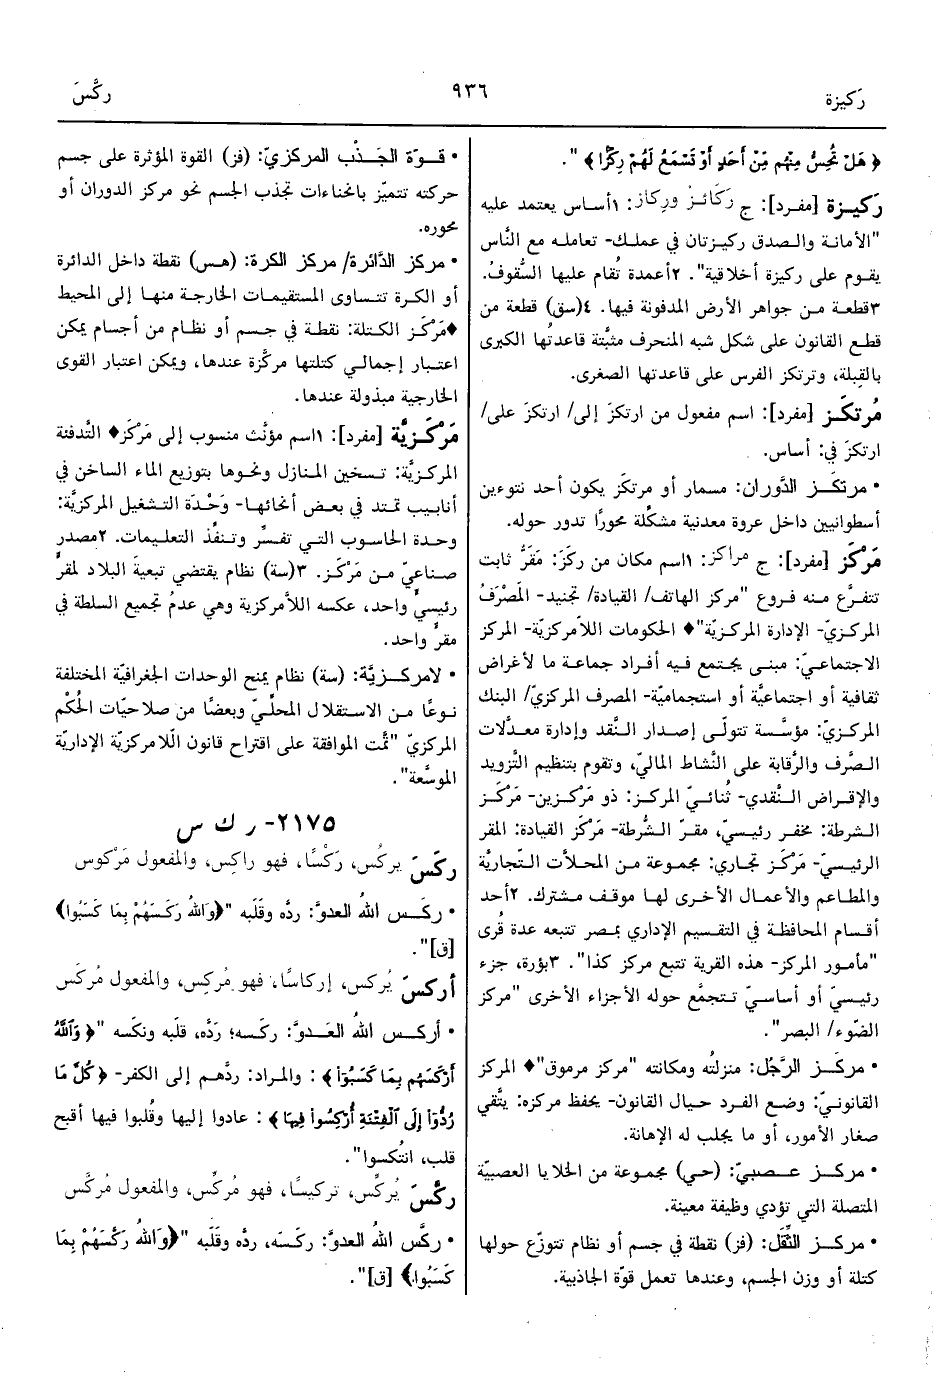 رَكيزة
٩٣٦
ركَّسَ
﴿ هَلْ تُحِسُّ مِنْهُم مِّنْ أَحَدٍ أَوْ تَسْمَعُ لَهُمْ رِكْزًا ﴾ ".
رَكيزة [مفرد]: ج رَكَائزُ ورِكازٌ: ١أساس يعتمد عليه
"الأمانة والصدق ركيزتان في عملك- تعامله مع النَّاس
يقوم على ركيزة أخلاقية". ٢أعمدة تُقام عليها السُّقوفُ.
٣قطعة من جواهر الأرض المدفونة فيها. ٤(سق) قطعة من
قطع القانون على شكل شبه المنحرف مثبَّتة قاعدتُها الكبرى
بالقِبلة، وترتكز الفرس على قاعدتها الصغرى.
مُرتكَز [مفرد]: اسم مفعول من ارتكزَ إلى/ ارتكزَ على/
ارتكزَ في: أساس.
• مرتكَز الدَّوران: مسمار أو مرتكَز يكون أحد نتوءين
أسطوانيين داخل عروة معدنية مشكِّلة محورًا تدور حوله.
مَرْكَز [مفرد]: ج مراكزُ: ١اسم مكان من ركزَ: مَقَرٌّ ثابت
تتفرَّع منه فروع "مركز الهاتف/ القيادة/ تجنيد- المَصْرَفُ
المركزيّ- الإدارة المركزيّة"♦ الحكومات اللاَّمركزيّة- المركز
الاجتماعيّ: مبنى يجتمع فيه أفراد جماعة ما لأغراض
ثقافية أو اجتماعيَّة أو استجمامية- المصرف المركزيّ/ البنك
المركزيّ: مؤسَّسة تتولَّى إصدار النَّقد وإدارة معدَّلات
الصَّرف والرَّقابة على النَّشاط الماليّ، وتقوم بتنظيم التَّزويد
والإقراض النَّقدي- ثُنائيّ المركز: ذو مَرْكزين- مَرْكَز
الشرطة: مخفر رئيسيّ، مقرّ الشُّرطة- مَرْكَز القيادة: المقر
الرئيسيّ- مَرْكَز تجاري: مجموعة من المحلاَّت التِّجاريَّة
والمطاعم والأعمال الأخرى لها موقف مشترك. ٢أحد
أقسام المحافظة في التقسيم الإداري بمصر تتبعه عدة قُرى
"مأمور المركز- هذه القرية تتبع مركز كذا". ٣بؤرة، جزء
رئيسيّ أو أساسيّ تتجمَّع حوله الأجزاء الأخرى "مركز
الضَّوء/ البصر".
• مركَز الرَّجُل: منزلتُه ومكانته "مركز مرموق"♦ المركز
القانونيّ: وضع الفرد حيال القانون- يحفظ مركزه: يتَّقي
صغار الأمور، أو ما يجلب له الإهانة.
• مركز عصبيّ: (حي) مجموعة من الخلايا العصبيَّة
المتصلة التي تؤدي وظيفة معينة.
• مركز الثِّقَل: (فز) نقطة في جسم أو نظام تتوزّع حولها
كتلة أو وزن الجسم، وعندها تعمل قوّة الجاذبية.
• قوّة الجَذْب المركزيّ: (فز) القوة المؤثرة على جسم
حركته تتميّز بانحناءات تجذب الجسم نحو مركز الدوران أو
محوره.
• مركز الدَّائرة/ مركز الكرة: (هس) نقطة داخل الدائرة
أو الكرة تتساوى المستقيمات الخارجة منها إلى المحيط
♦مَرْكَز الكتلة: نقطة في جسم أو نظام من أجسام يمكن
اعتبار إجمالي كتلتها مركَّزة عندها، ويمكن اعتبار القوى
الخارجية مبذولة عندها.
مَرْكَزيَّة [مفرد]: ١اسم مؤنَّث منسوب إلى مَرْكَز♦ التَّدفئة
المركزيَّة: تسخين المنازل ونحوها بتوزيع الماء الساخن في
أنابيب تمتد في بعض أنحائها- وَحْدَة التشغيل المركزيَّة:
وحدة الحاسوب التي تفسِّر وتنفِّذ التعليمات. ٢مصدر
صناعيّ من مَرْكَز. ٣(سة) نظام يقتضي تبعية البلاد لمقرٍّ
رئيسيٍّ واحد، عكسه اللاَّمركزية وهي عدمُ تجميع السلطة في
مقرٍّ واحد.
• لامركزيَّة: (سة) نظام يمنح الوحدات الجغرافيّة المختلفة
نوعًا من الاستقلال المحلّيّ وبعضًا من صلاحيّات الحُكْم
المركزيّ "تمَّت الموافقة على اقتراح قانون اللّامركزيّة الإداريّة
الموسَّعة".
٢١٧٥- ر ك س
ركَسَ يركُس، رَكْسًا، فهو راكِس، والمفعول مَرْكوس
• ركَس اللهُ العدوَّ: ردَّه وقَلَبه "﴿وَاللهُ رَكَسَهُمْ بِمَا كَسَبُوا﴾
[ق]".
أركسَ يُركِس، إركاسًا، فهو مُركِس، والمفعول مُركَس
• أركس اللهُ العدوَّ: ركَسه؛ رَدَّه، قلَبه ونكَسه "﴿ وَٱللَّهُ
أَرْكَسَهُم بِمَا كَسَبُوٓا۟ ﴾ : والمراد: ردَّهم إلى الكفر- ﴿ كُلَّ مَا
رُدُّوٓا۟ إِلَى ٱلْفِتْنَةِ أُرْكِسُوا۟ فِيهَا ﴾ : عادوا إليها وقُلبوا فيها أقبح
قلب، انتُكسوا".
ركَّسَ يُركِّس، تركيسًا، فهو مُركِّس، والمفعول مُركَّس
• ركَّس اللهُ العدوَّ: ركَسَه، ردَّه وقلَبه "﴿وَاللهُ رَكَّسَهُمْ بِمَا
كَسَبُوا﴾ [ق]".